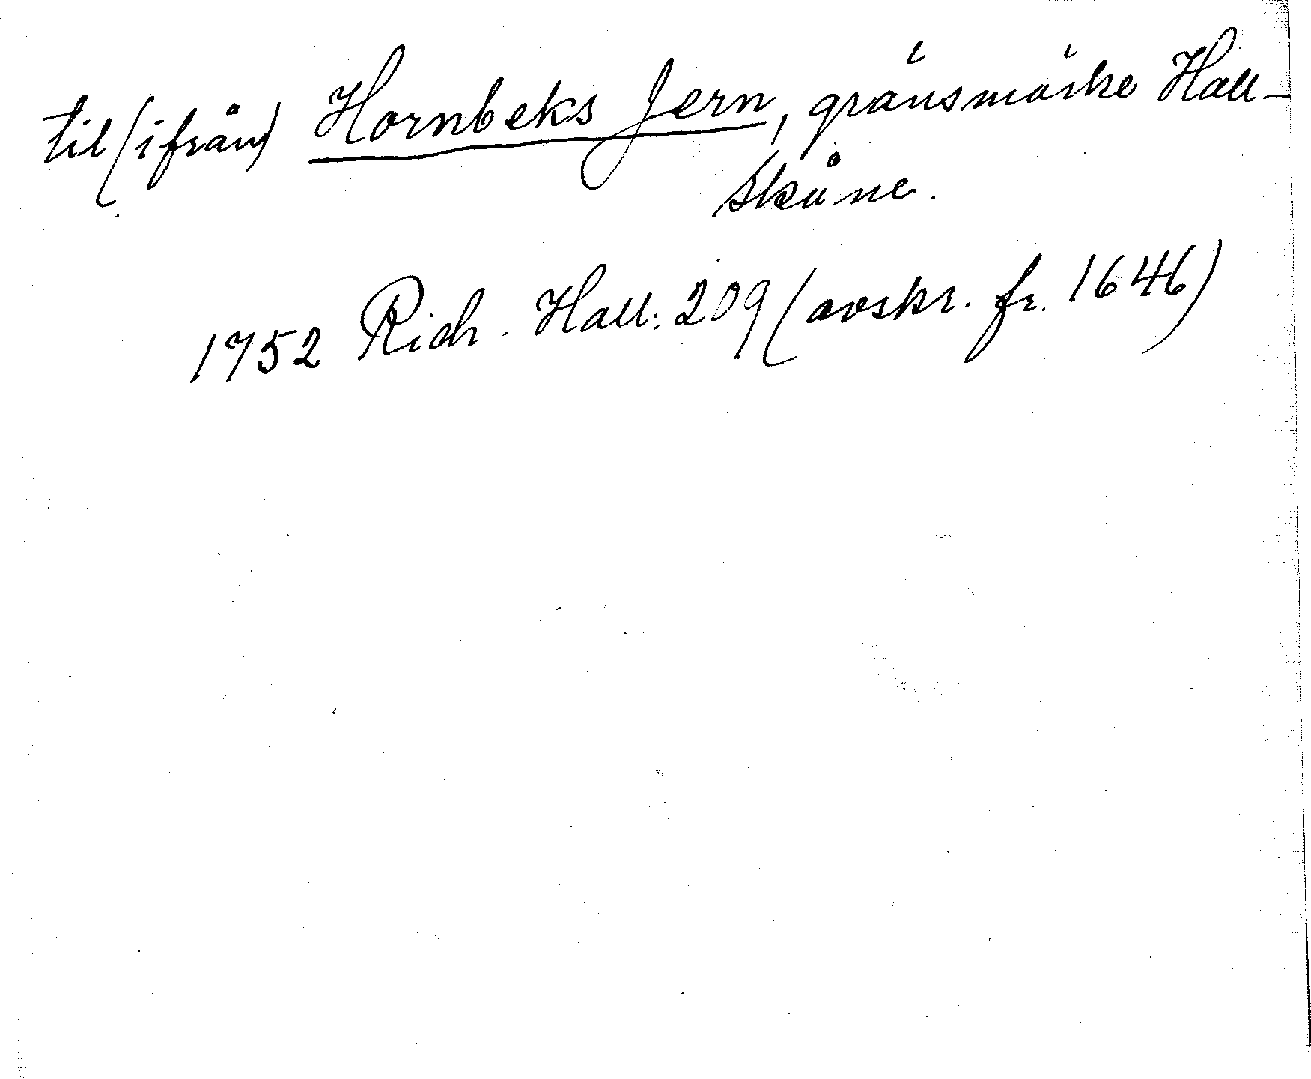 til (ifrån) Hornbeks Jern, gränsmärke Hall-
Skåne.
1752 Rich. Hall: 209 (avskr. fr. 1646)